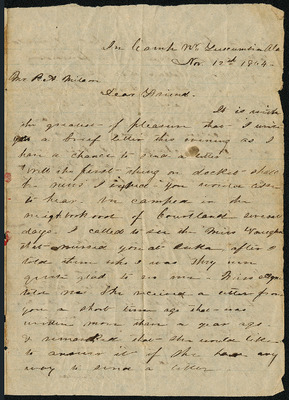 In Camp Nr Tuscumbia Ala
Nov. 12th 1864.
Mr R. A.
Dear Friend.
It is with
the greatest of pleasure that I write
you a brief letter this evening as I
have a chance to send a letter
Well the first thing on docket shall
be news I you would like
to hear. We camped in the
neighborhood of Courtland several
days. I called to see the Miss
that you at after I
told them who I was they were
great glad to see me Miss
told me she received a letter from
you a short time ago that was
written more than a year ago.
& remarked that she would like
to answer it if she had any
way to send a letter